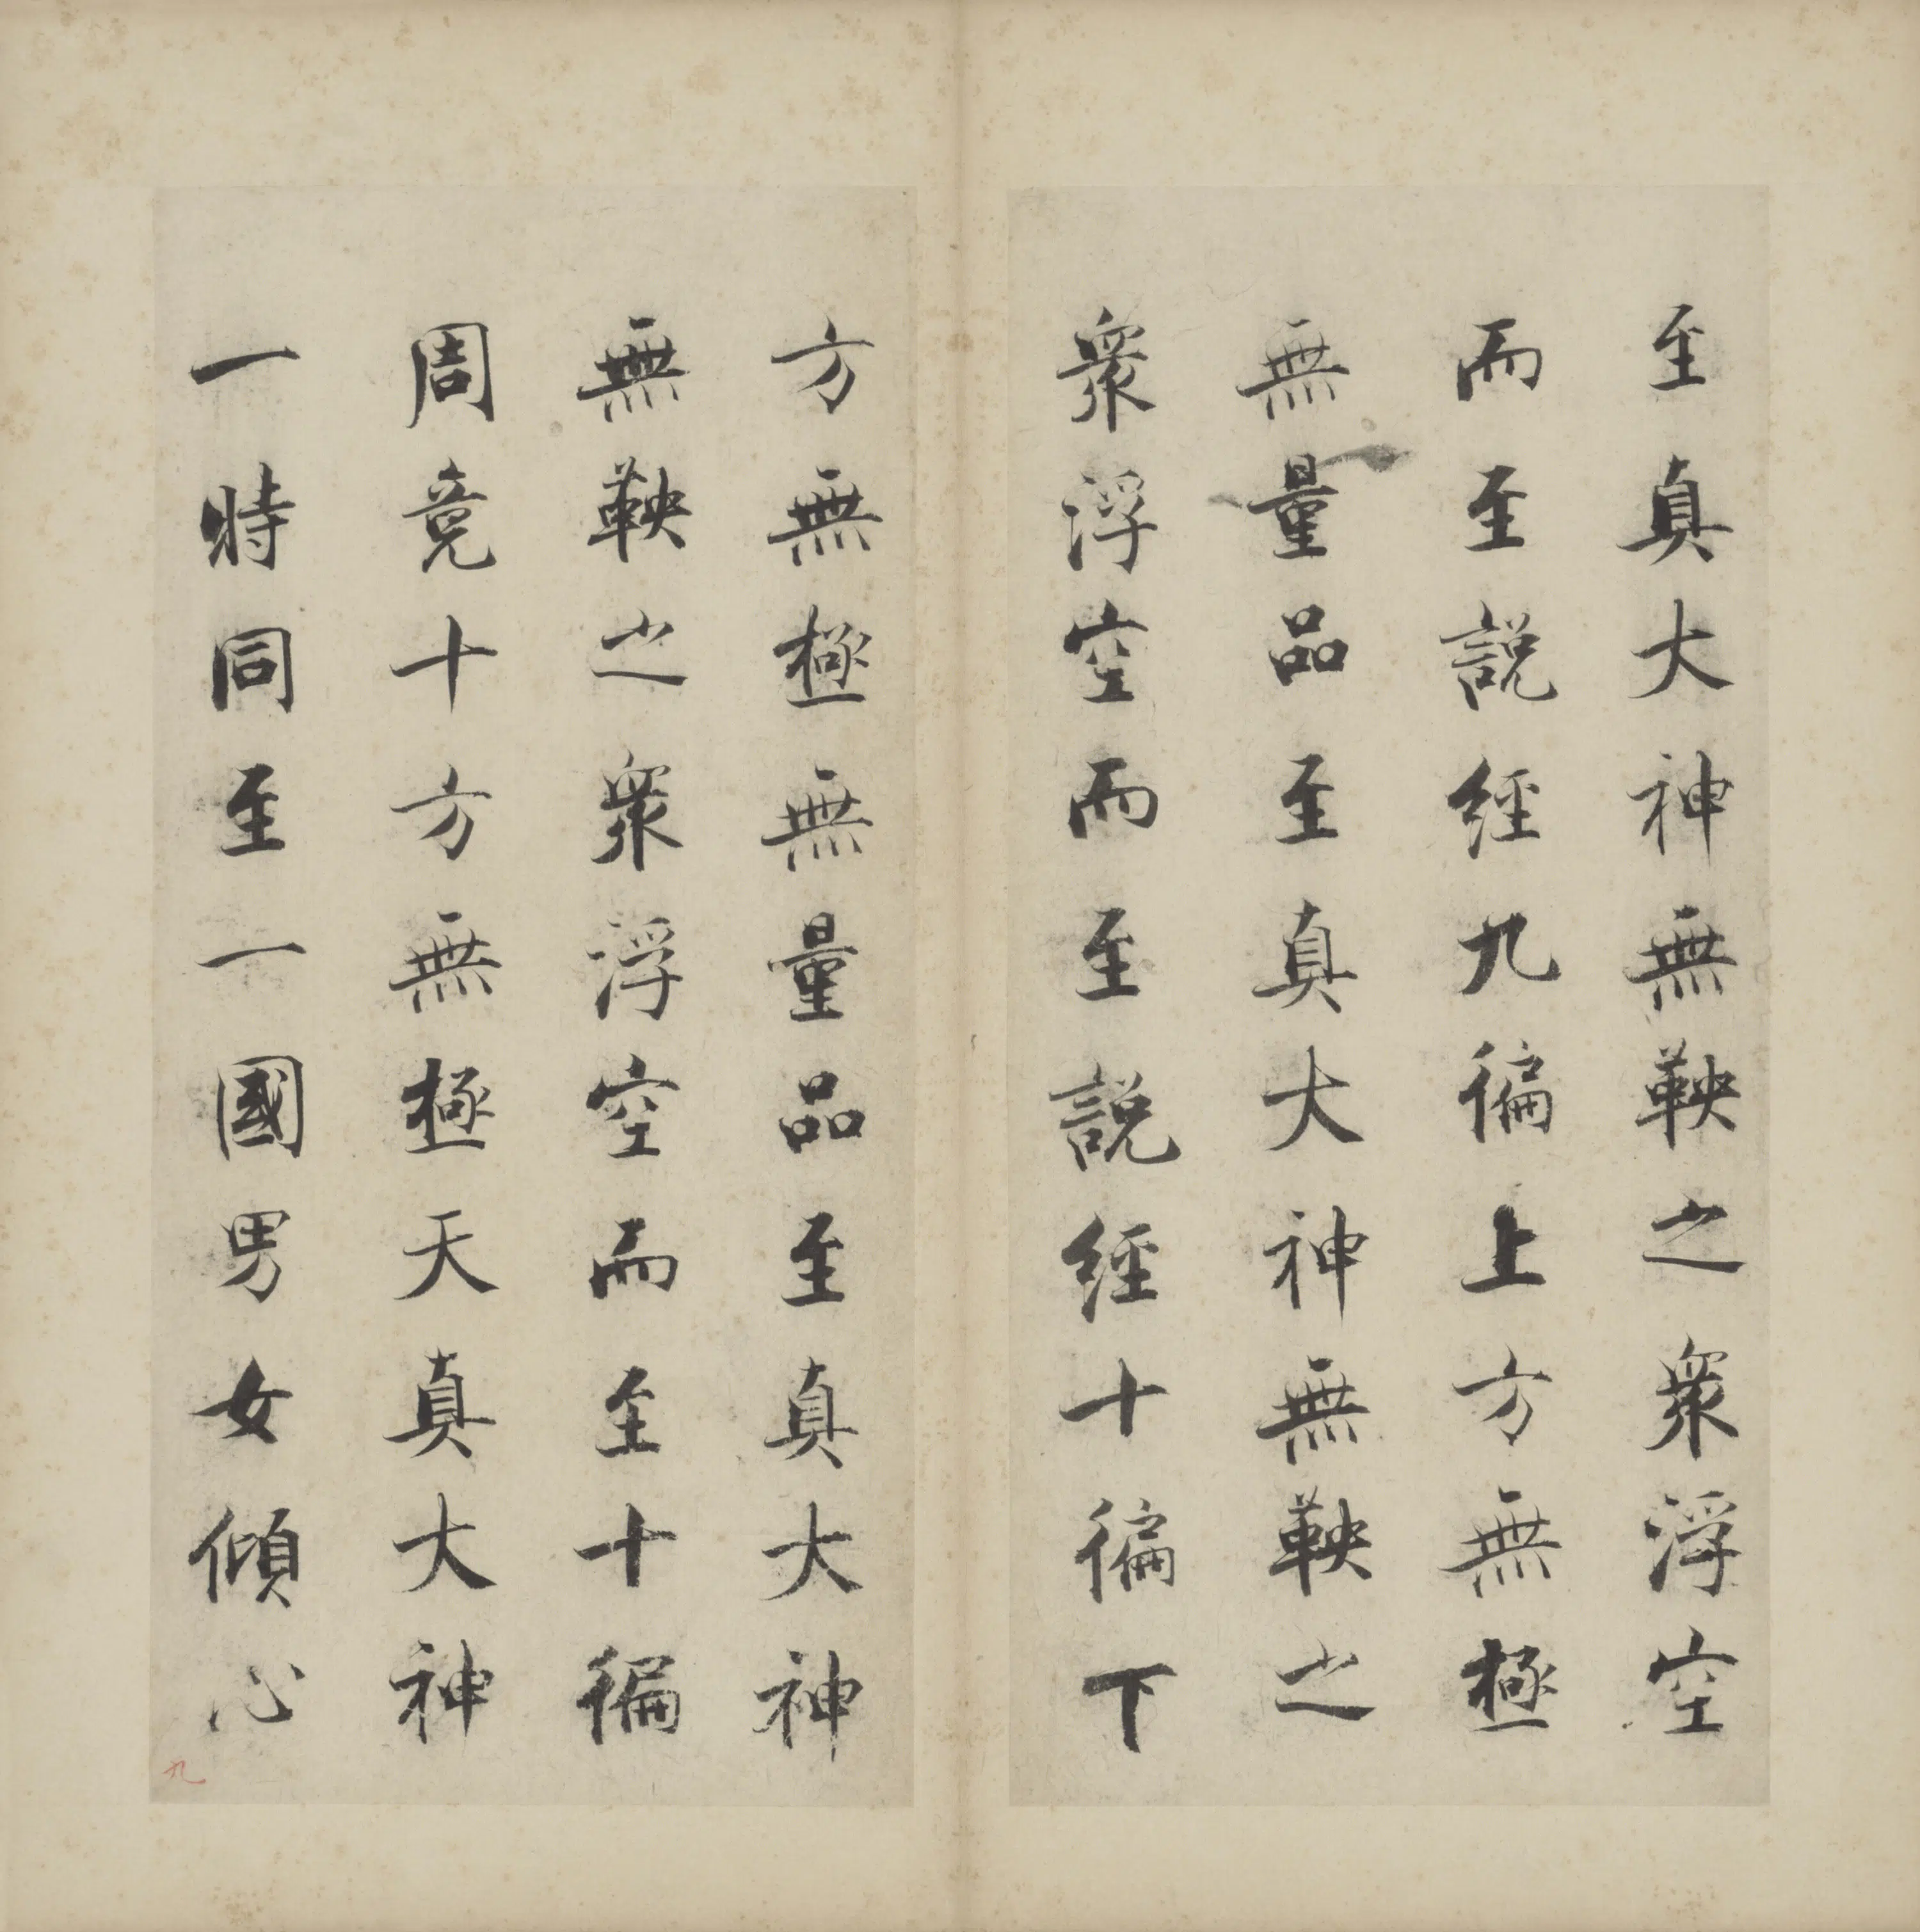 至真大神無鞅之衆浮空
而至說經九徧上方無極
無量品至真大神無鞅之
衆浮空而至說經十徧下
方無極無量品至真大神
無鞅之衆浮空而至十徧
周竟十方無極天真大神
一時同至一國男女傾心
九